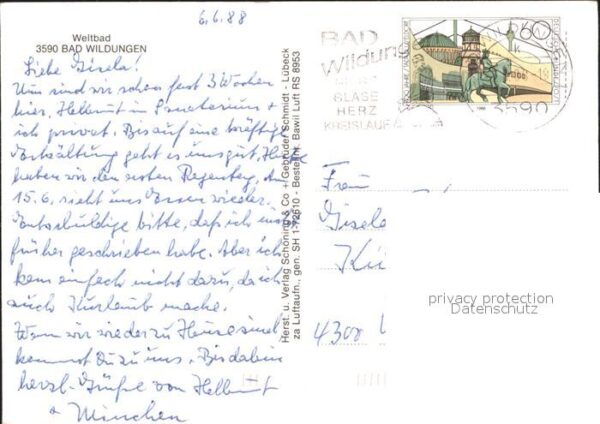 6.6.88
Weltbad
3590 BAD WILDUNGEN
Liebe Gisela!
Nun sind wir schon fast 3 Wochen
hier. Hellmut im Sanatorium +
ich privat. Bis auf eine kräftige
Erkältung geht es uns gut. Heute
haben wir den ersten Regentag. Am
15.6. sieht uns Essen wieder.
Entschuldige bitte, daß ich nicht
früher geschrieben habe. Aber ich
kam einfach nicht dazu, da ich
auch Kurlaub mache.
Wenn wir wieder zu Hause sind
kommst Du zu uns. Bis dahin
herzl. Grüße von Hellmut
+ Minchen
Herst. u. Verlag Schöning & Co + Gebrüder Schmidt - Lübeck
za Luftaufn., gen. SH 1-72610 - Bestellnr. Bawil Luft RS 8953
BAD
Wildungen
BLASE
HERZ
KREISLAUF
60
3590
Frau
Gisela
4300
privacy protection
Datenschutz